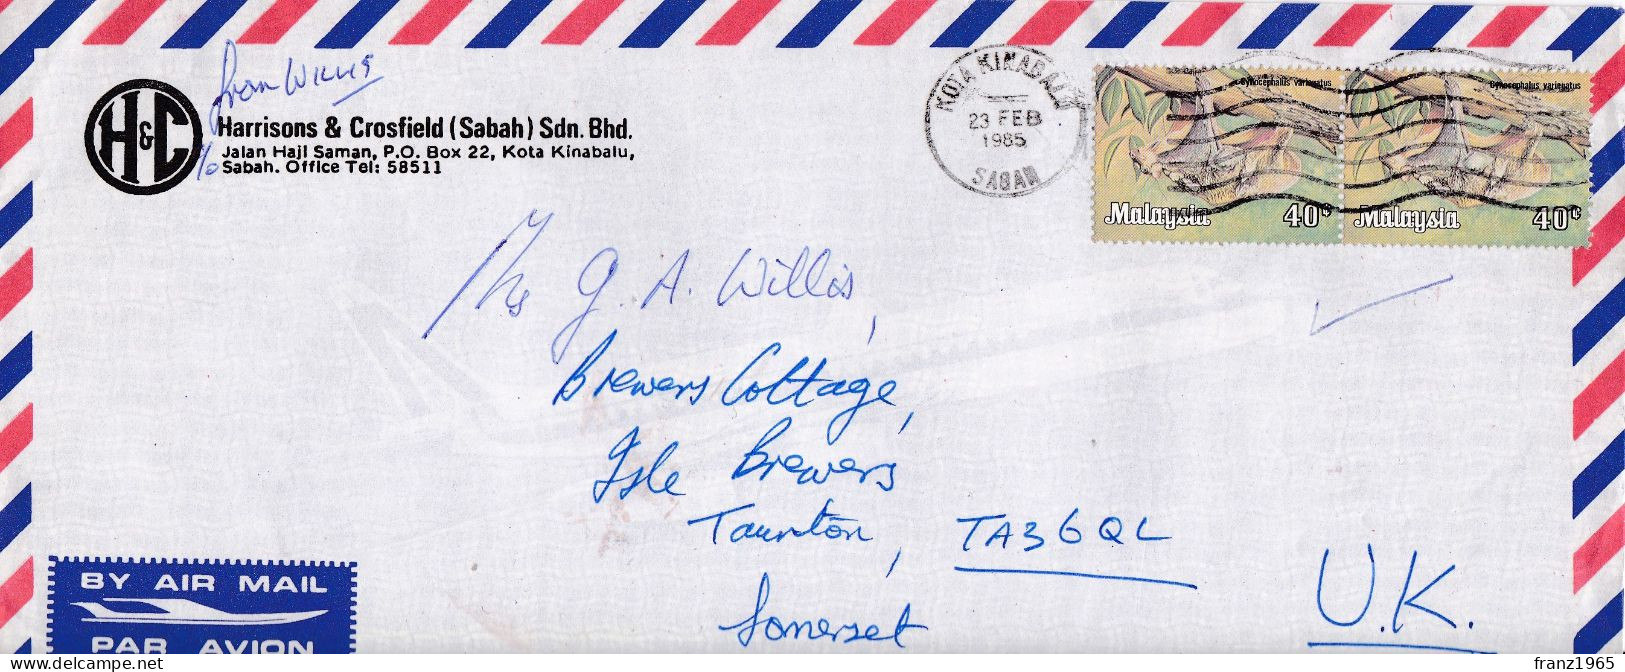 from WILLIS
H&C
Harrisons & Crosfield (Sabah) Sdn. Bhd.
c/o Jalan Haji Saman, P.O. Box 22, Kota Kinabalu,
Sabah. Office Tel: 58511
KOTA KINABALU
23 FEB
1985
SABAH
Cynocephalus variegatus
Malaysia 40¢
Cynocephalus variegatus
Malaysia 40¢
G. A. Willis,
Brewers Cottage,
Isle Brewers
Taunton, TA3 6QL
Somerset
U.K.
BY AIR MAIL
PAR AVION
delcampe.net
franz1965